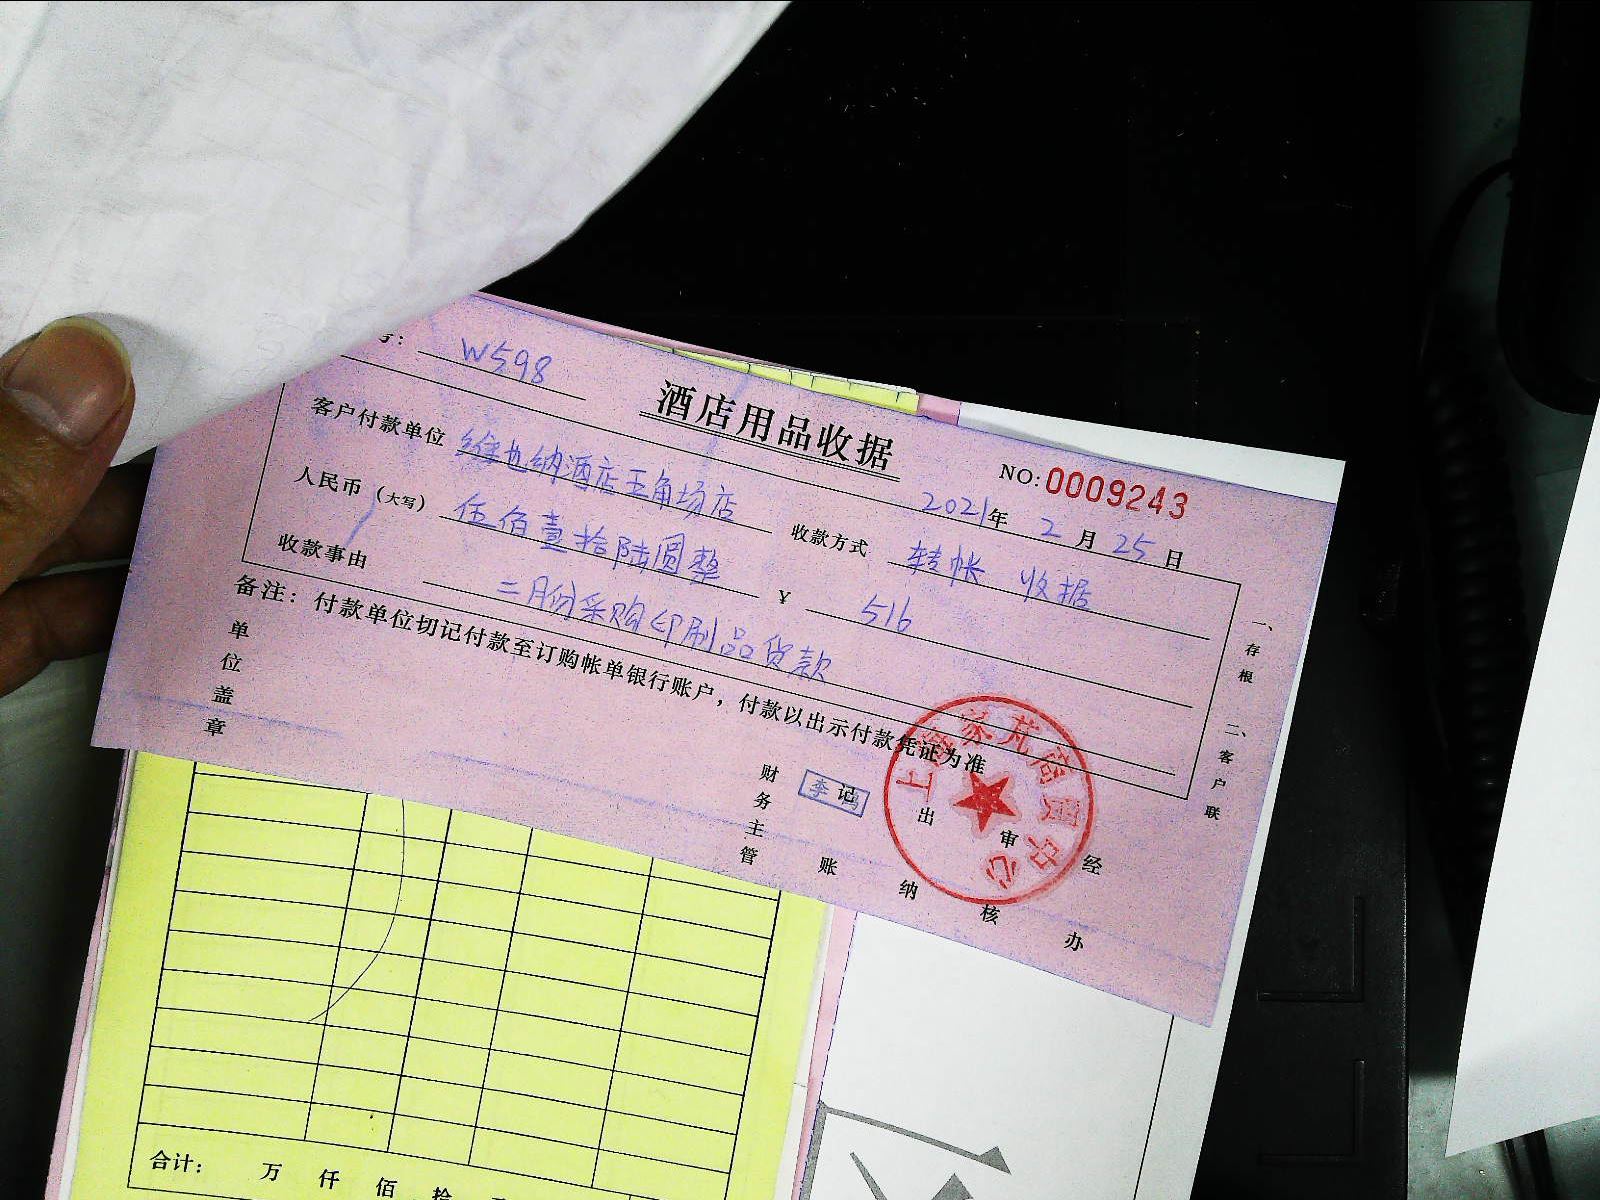 号：W598
酒店用品收据
NO:0009243
2021年 2 月 25 日
客户付款单位 维也纳酒店五角场店 收款方式 转帐 收据
人民币（大写） 伍佰壹拾陆圆整 ￥ 516
收款事由 二月份采购印刷品货款
备注：付款单位切记付款至订购帐单银行账户，付款以出示付款凭证为准
一、存根 二、客户联
单位盖章
财务主管
记账
出纳
审核
经办
合计： 万 仟 佰 拾